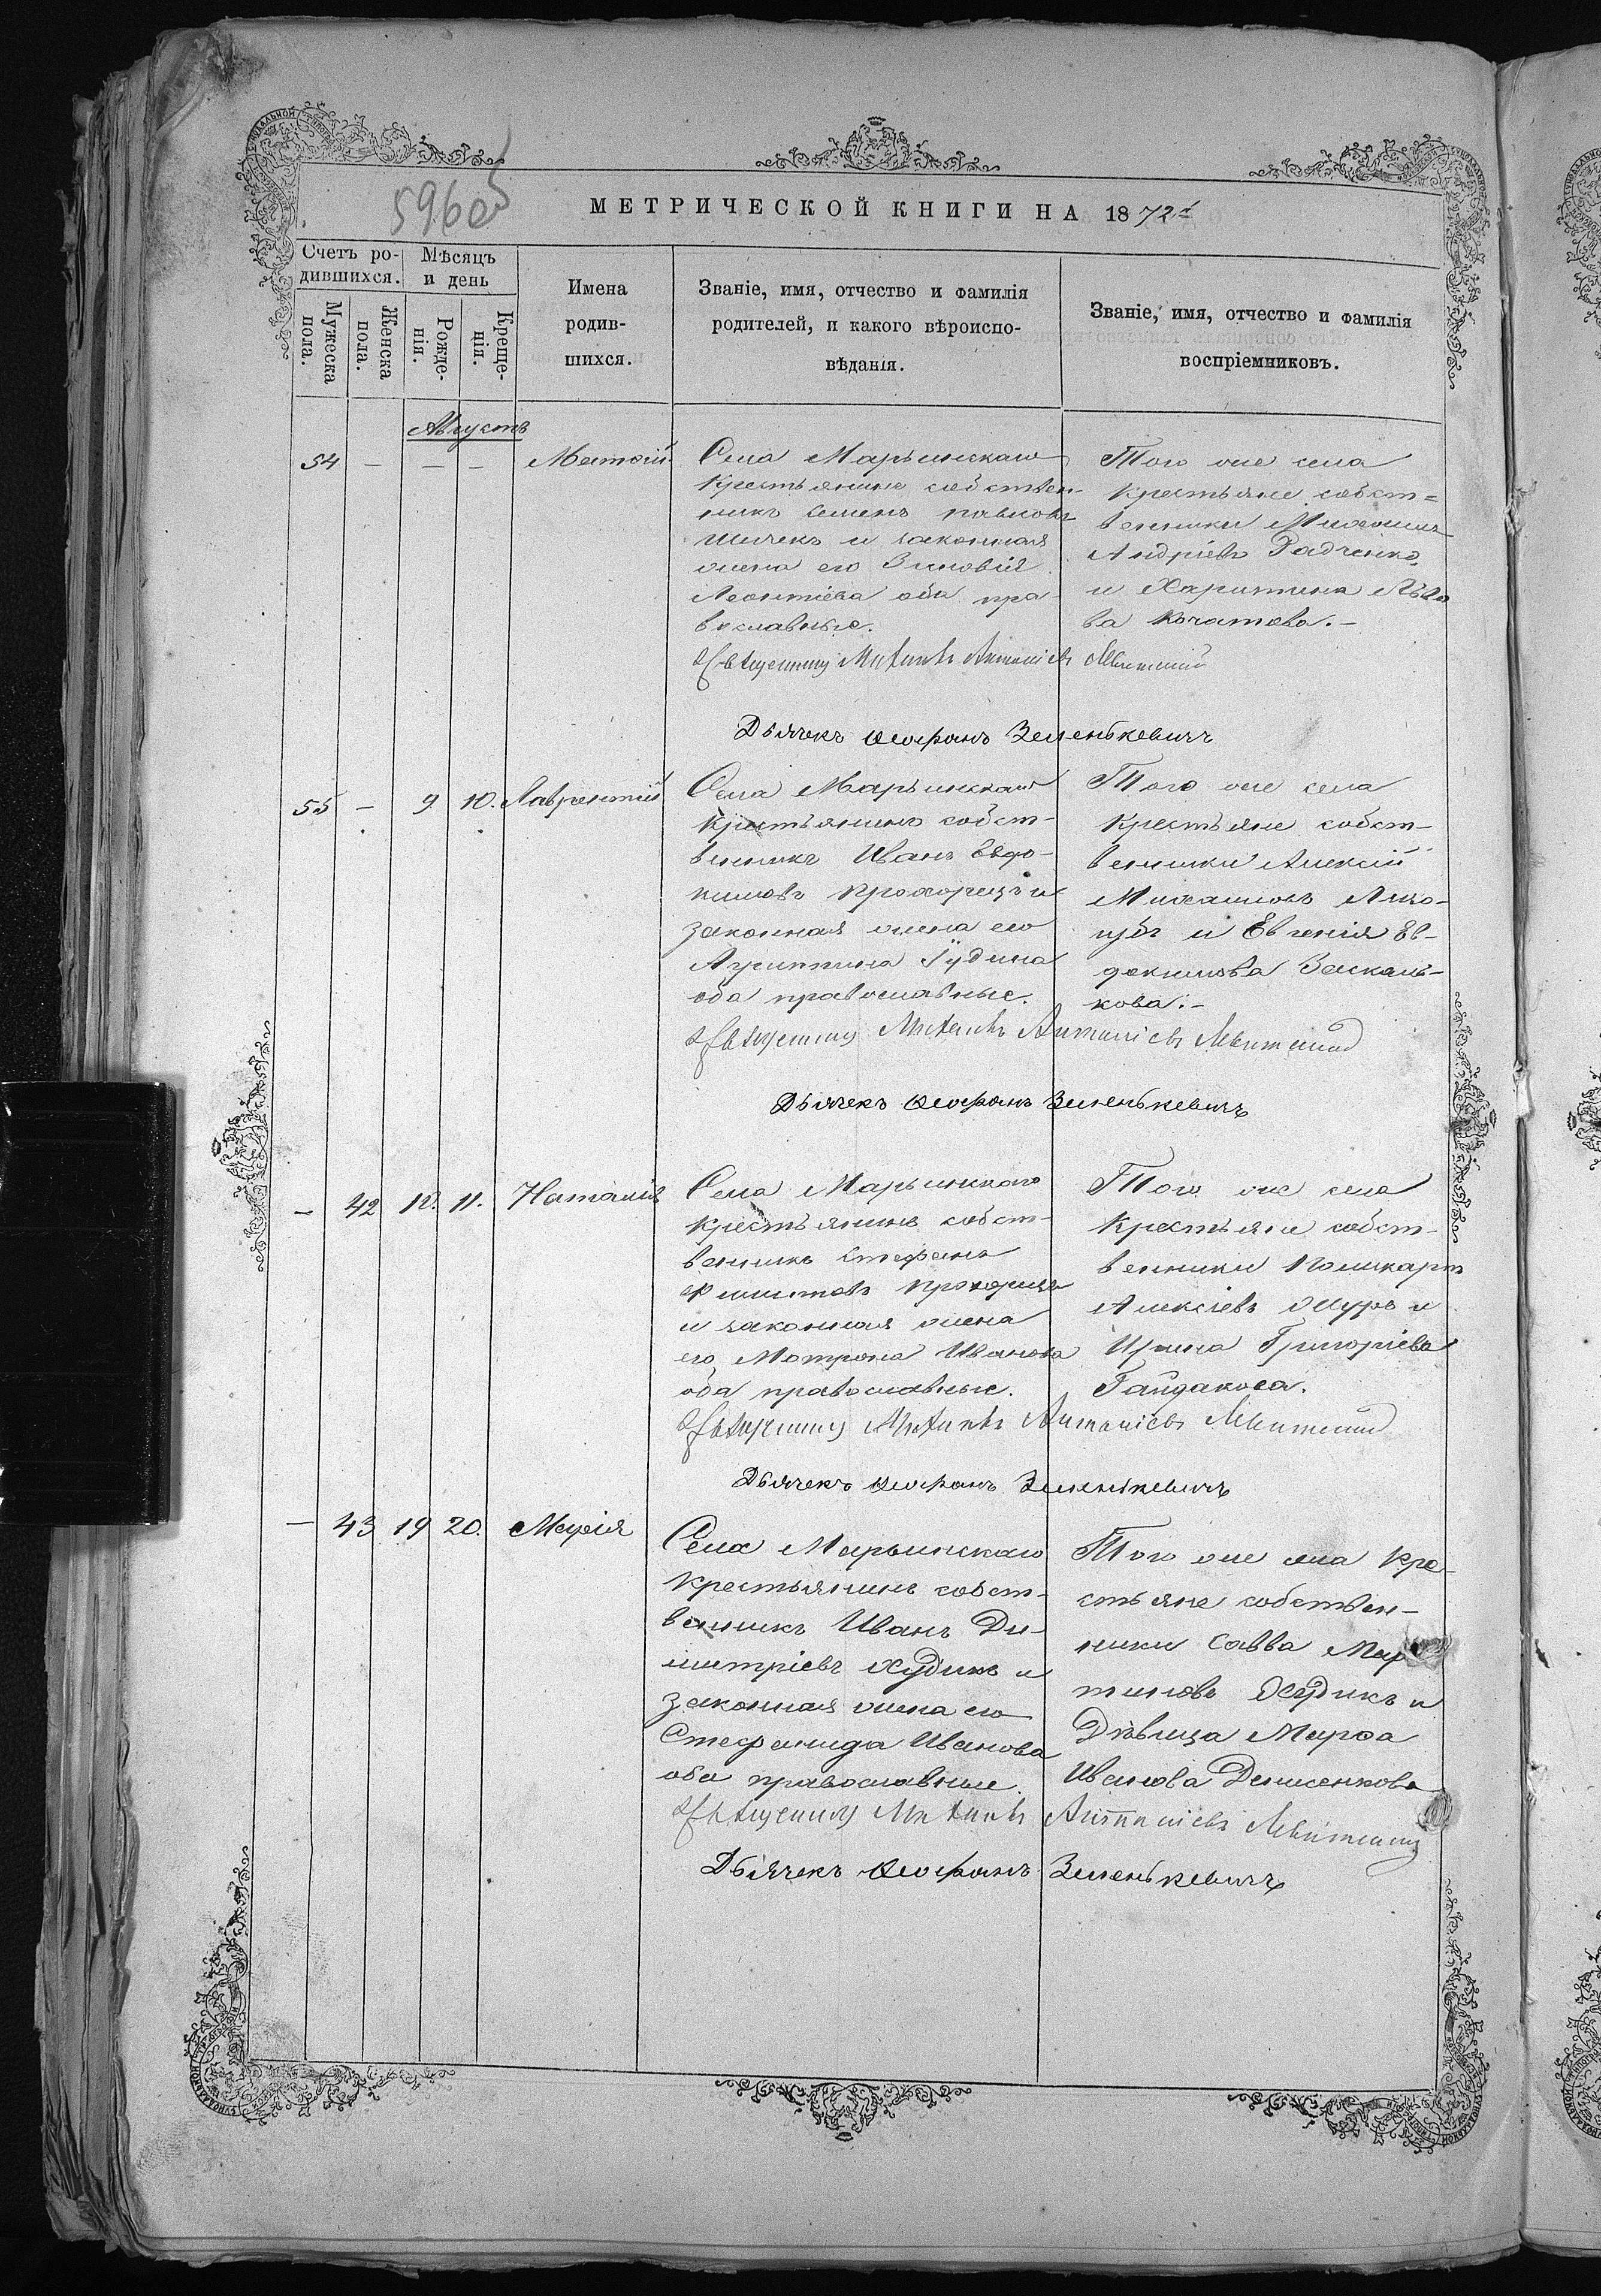 596об
МЕТРИЧЕСКОЙ КНИГИ НА 1872й
Счетъ ро-
дившихся.
Мѣсяцъ
и день
Мужеска
пола.
Женска
пола.
Рожде-
нія.
Креще-
нія.
Имена
родив-
шихся.
Званіе, имя, отчество и фамилія
родителей, и какого вѣроиспо-
вѣданія.
Званіе, имя, отчество и фамилія
воспріемниковъ.
Августъ
54 — — — Матѳій
Села Марьинскаго
крестьянинъ собствен-
никъ Семенъ Павловъ
и законная
жена его Зиновія
Леонтіева оба пра-
вославные.
Того же села
крестьяне собст-
венники Михаилъ
Андріевъ Радченко
и Харитина Льво
ва
Священникъ Михаилъ Антоніевъ
Дьячекъ Ѳеофанъ Зеленькевичъ
55 — 9. 10. Лаврентій
Села Марьинскаго
крестьянинъ собст-
венникъ Иванъ Евдо-
кимовъ Прохорецъ и
законная жена его
Агриппина Іудина
оба православные.
Того же села
крестьяне собст-
венники Алексій
Михаиловъ
и Евгенія Ев-
докимова
кова.—
Священникъ Михаилъ Антоніевъ
Дьячекъ Ѳеофанъ Зеленькевичъ
— 42 10. 11. Наталія
Села Марьинскаго
крестьянинъ собст-
венникъ Стефанъ
Филиповъ Прохорецъ
и законная жена
его Матрона Иванова
оба православные.
Того же села
крестьяне собст-
венники Поликарпъ
Алексіевъ и
Ирина Григоріева
Гайдакова.
Священникъ Михаилъ Антоніевъ
Дьячекъ Ѳеофанъ Зеленькевичъ
— 43 19 20. Марія
Села Марьинскаго
крестьянинъ собст-
венникъ Иванъ Ди-
митріевъ Худикъ и
законная жена его
Стефанида Иванова
оба православные.
Того же села кре-
стьяне собствен-
ники Савва Мар
тиновъ Худикъ и
Дѣвица Марѳа
Иванова Денисенкова
Священникъ Михаилъ Антоніевъ
Дьячекъ Ѳеофанъ Зеленькевичъ